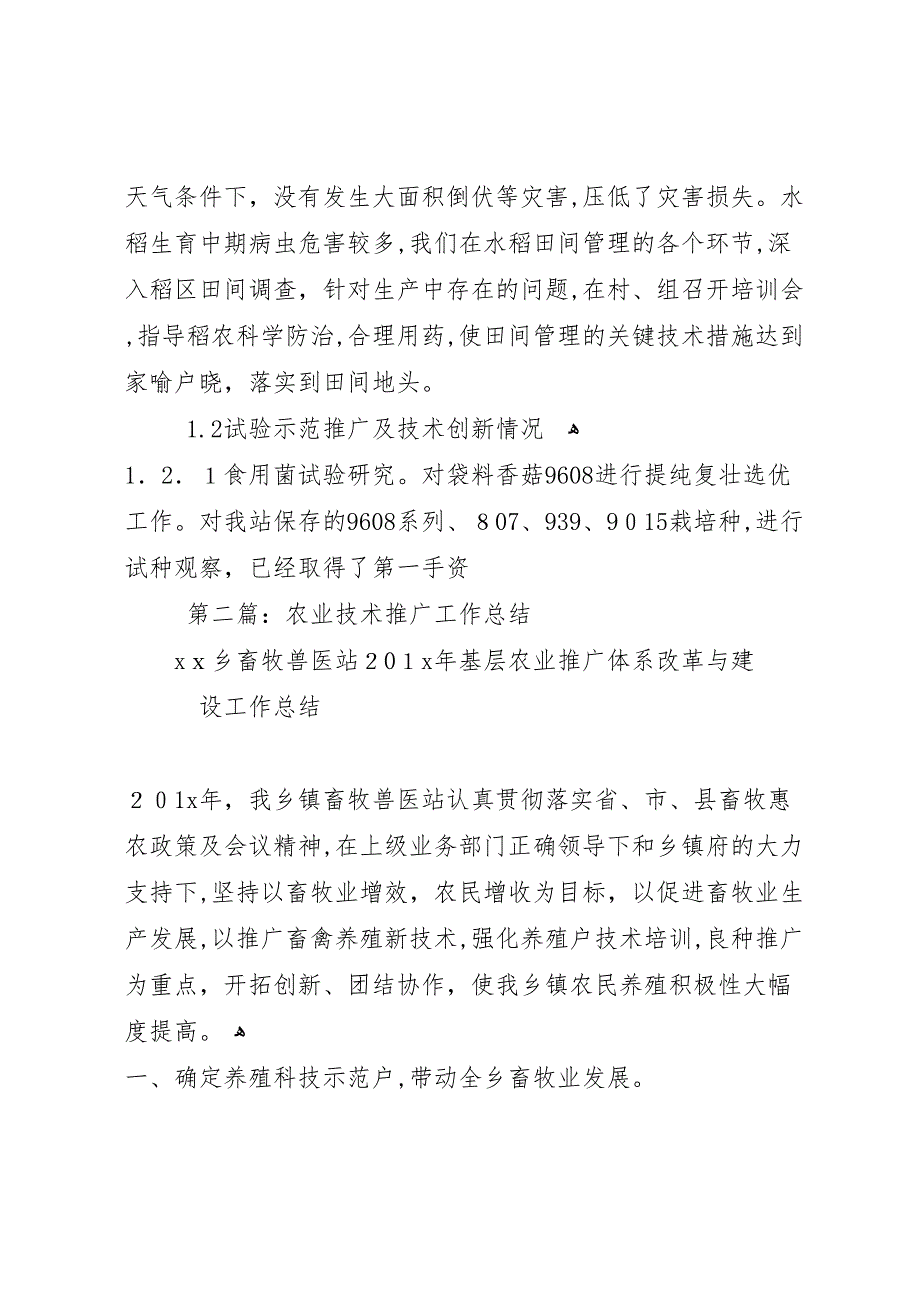 天气条件下，没有发生大面积倒伏等灾害,压低了灾害损失。水
稻生育中期病虫危害较多,我们在水稻田间管理的各个环节,深
入稻区田间调查，针对生产中存在的问题,在村、组召开培训会
,指导稻农科学防治,合理用药,使田间管理的关键技术措施达到
家喻户晓，落实到田间地头。
1.2试验示范推广及技术创新情况 ﻫ
1．2．１食用菌试验研究。对袋料香菇9608进行提纯复壮选优
工作。对我站保存的9608系列、８07、939、9０15栽培种,进行
试种观察，已经取得了第一手资
第二篇：农业技术推广工作总结
xｘ乡畜牧兽医站２0１x年基层农业推广体系改革与建
设工作总结
２０1x年，我乡镇畜牧兽医站认真贯彻落实省、市、县畜牧惠
农政策及会议精神,在上级业务部门正确领导下和乡镇府的大力
支持下,坚持以畜牧业增效，农民增收为目标，以促进畜牧业生
产发展,以推广畜禽养殖新技术,强化养殖户技术培训,良种推广
为重点，开拓创新、团结协作，使我乡镇农民养殖积极性大幅
度提高。ﻫ
一、确定养殖科技示范户,带动全乡畜牧业发展。